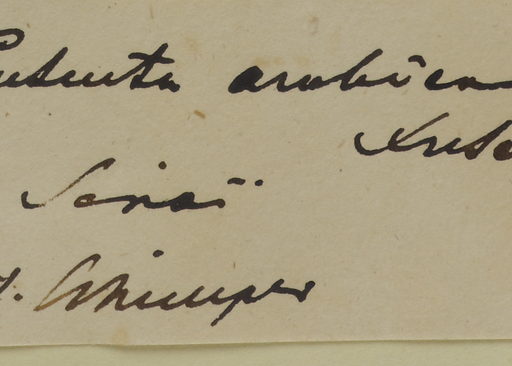 Cuscuta arabica
Fres
Sinai
W. Schimper